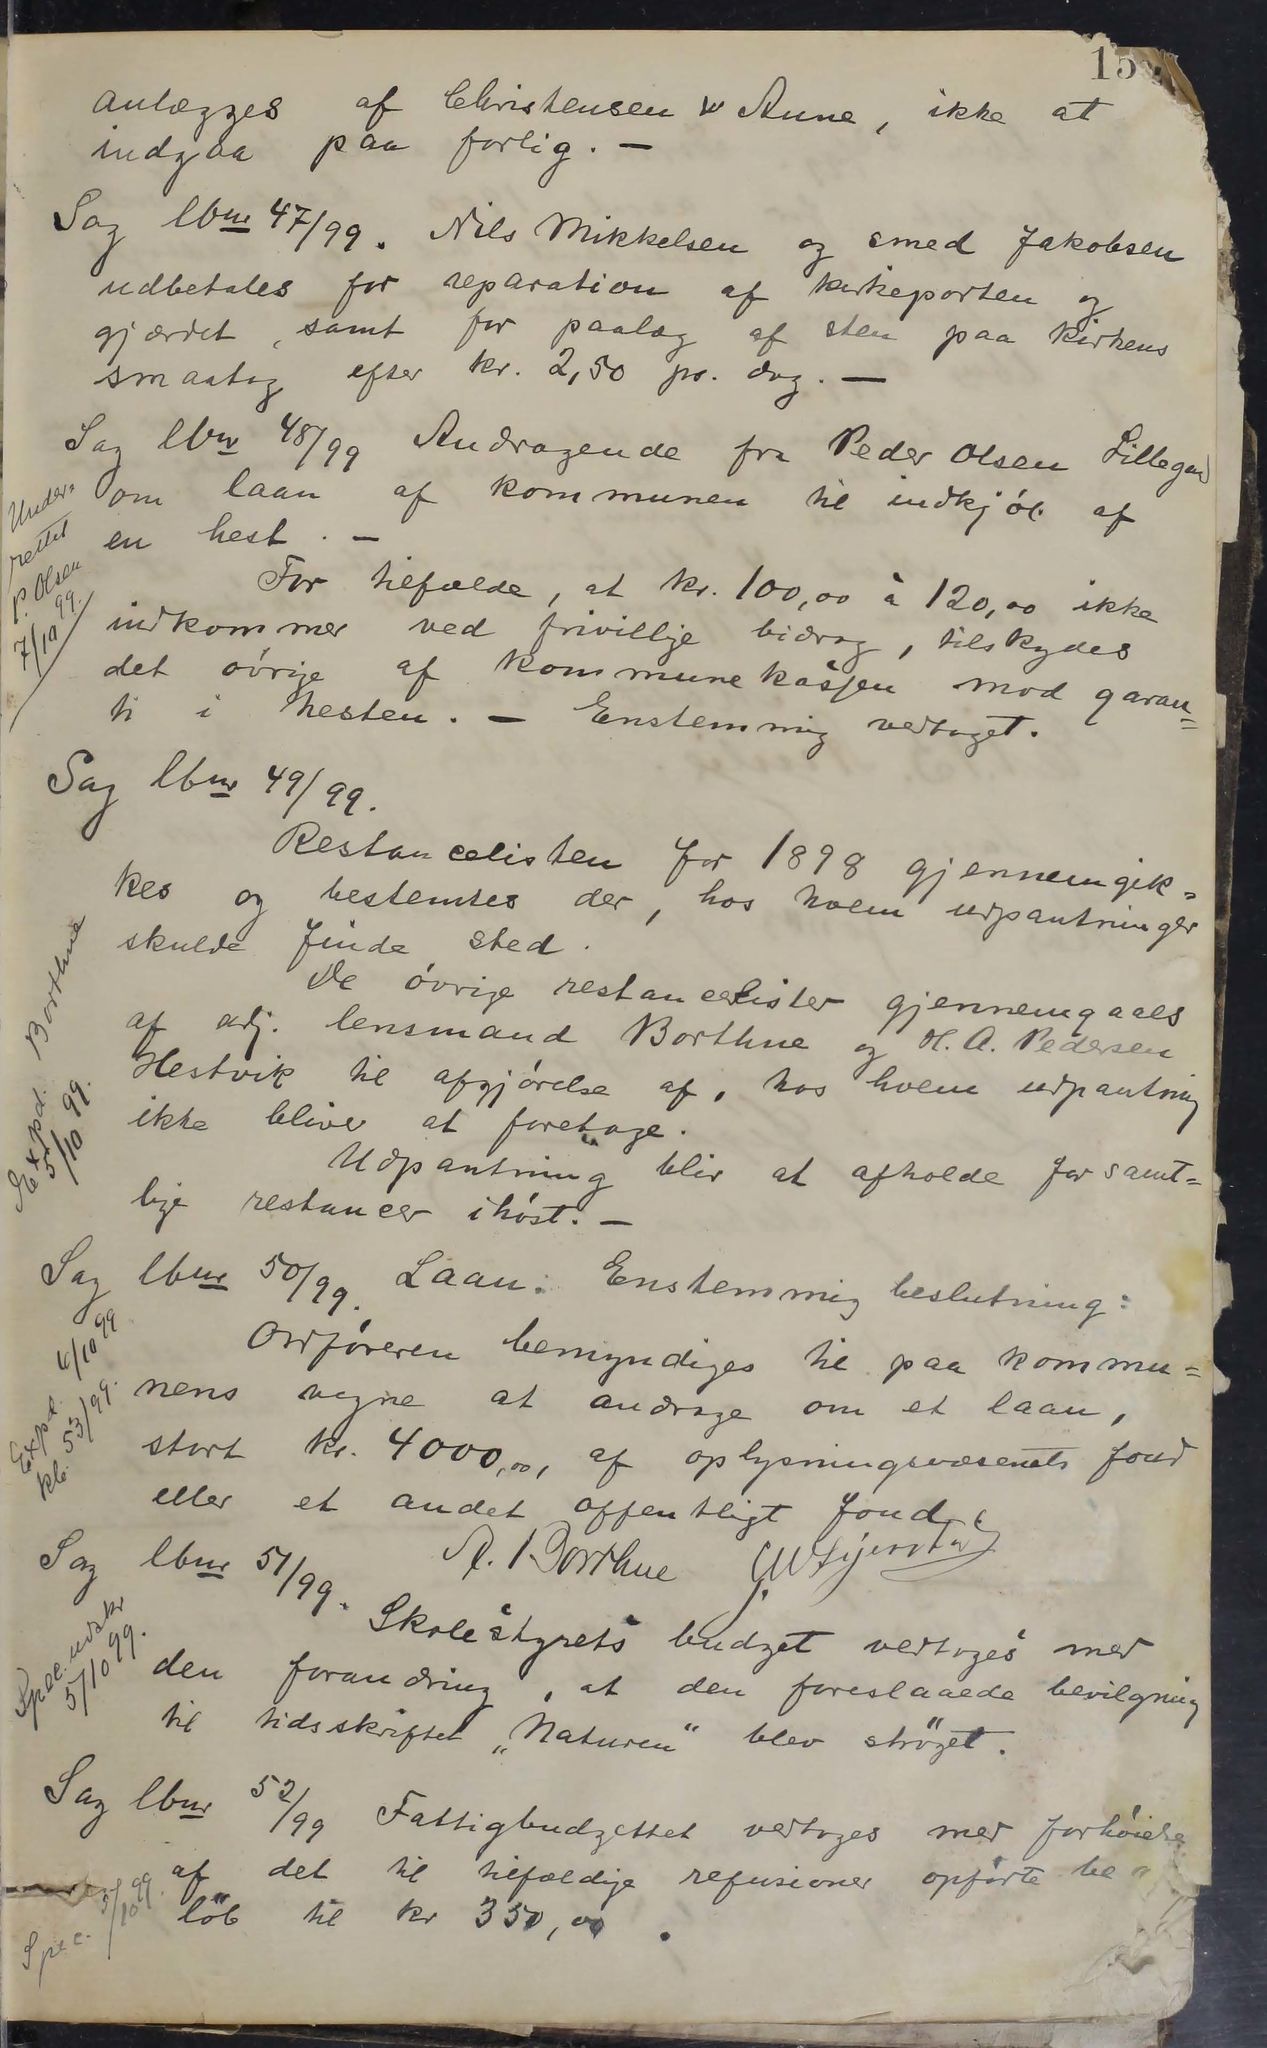 15
anlægges af Christensen & Anne, ikke at
indgaa paa forlig. —
Sag lbnr 47/99. Nils Mikkelsen og smed Jakobsen
udbetales for reparation af kirkeporten og
gjærdet, samt for paalæg af sten paa kirkens
smaatag efter kr. 2,50 pr. dag. —
Sag lbnr 48/99 Andragende fra Peder Olsen Lillegaard
om laan af kommunen til indkjøb af
en hest. —
Under=
rettet
P. Olsen
7/10 99.
For tilfælde, at kr. 100,00 à 120,00 ikke
indkommer ved frivillige bidrag, tilskydes
det øvrige af kommunekassen mod garan=
ti i hesten. — Enstemmig vedtaget.
Sag lbnr 49/99.
Restancelisten for 1898 gjennemgik=
kes og bestemtes der, hos hvem udpantninger
skulde finde sted.
De øvrige restancelister gjennemgaaes
af adj. lensmand Borthne og H. A. Pedersen
Hestvik til afgjørelse af, hos hvem udpantning
ikke bliver at foretage.
Expd. Borthne
5/10 99.
Udpantning blir at afholde for samt=
lige restancer ihøst. —
Sag lbnr 50/99. Laan. Enstemmig beslutning:
Ordføreren bemyndiges til paa kommu=
nens vegne at andrage om et laan,
stort kr. 4000,00, af oplysningsvæsenets fond
eller et andet offentligt fond.
Expd. 6/10 99
kb. 53/99.
A. Borthne
Sag lbnr 51/99.
Skolestyrets budget vedtoges med
den forandring, at den foreslaaede bevilgning
til tidsskriftet "Naturen" blev strøget.
Spec. udskr
5/10 99.
Sag lbnr 52/99 Fattigbudgettet vedtoges med forhøielse
af det til tilfældige refusioner opførte be=
løb til kr 350,00.
Spec. 5/10 99.